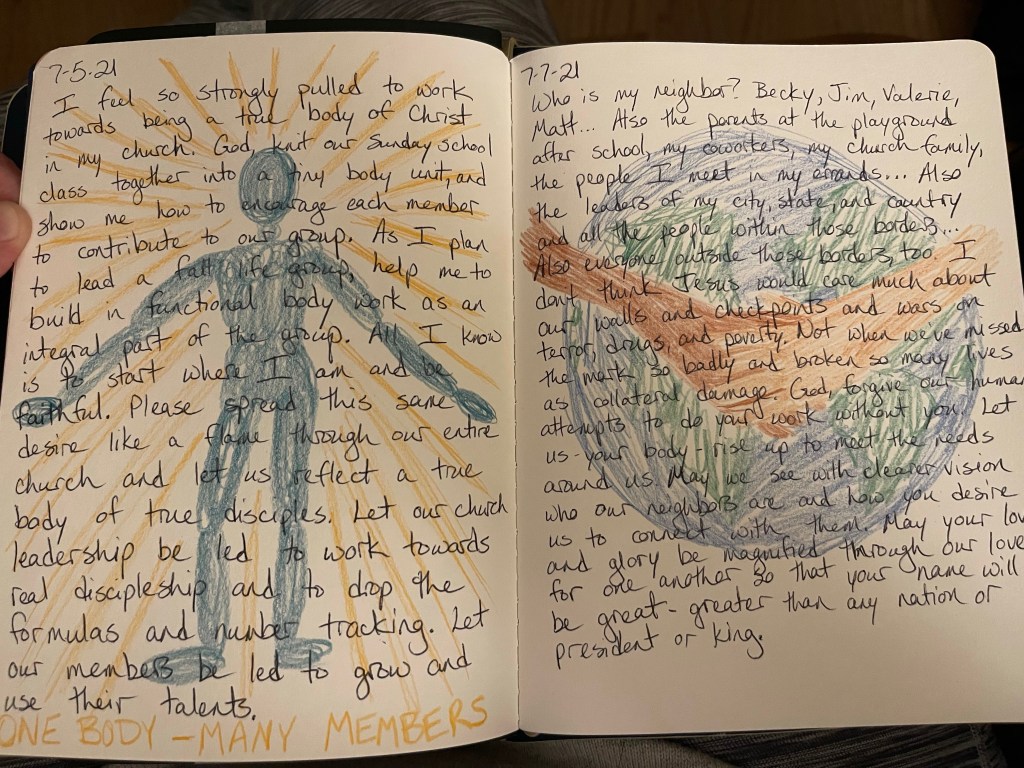 7-5-21
I feel so strongly pulled to work
towards being a true body of Christ
in my church. God, knit our Sunday School
class together into a tiny body unit, and
show me how to encourage each member
to contribute to our group. As I plan
to lead a fall life group, help me to
build in functional body work as an
integral part of the group. All I know
is to start where I am and be
faithful. Please spread this same
desire like a flame through our entire
church and let us reflect a true
body of true disciples. Let our church
leadership be led to work towards
real discipleship and to drop the
formulas and number tracking. Let
our members be led to grow and
use their talents.
ONE BODY - MANY MEMBERS
7-7-21
Who is my neighbor? Becky, Jim, Valerie,
Matt... Also the parents at the playground
after school, my coworkers, my church family,
the people I meet in my errands... Also
the leaders of my city, state, and country
and all the people within those borders...
Also everyone outside those borders, too. I
don't think Jesus would care much about
our walls and checkpoints and wars on
terror, drugs, and poverty. Not when we've missed
the mark so badly and broken so many lives
as collateral damage. God, forgive our human
attempts to do your work without you. Let
us - your body - rise up to meet the needs
around us. May we see with clearer vision
who our neighbors are and how you desire
us to connect with them. May your lov
and glory be magnified through our love
for one another so that your name will
be great - greater than any nation or
president or king.